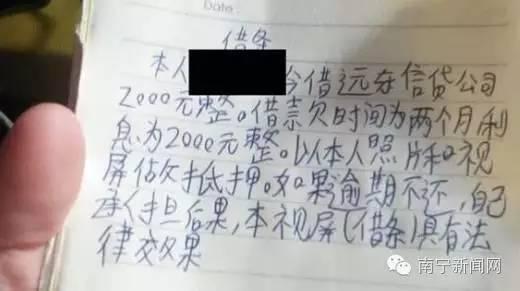 Date:
借条
本人 今借远东信贷公司
2000元整。借款欠时间为两个月利
息为2000元整。以本人照片和视
屏做抵押。如果逾期不还,自己
承担后果,本视屏(借条)具有法
律效果
南宁新闻网